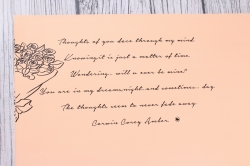 Thoughts of you race through my mind
Knowing it is just a matter of time.
Wondering, will u ever be mine?
You are in my dreams night and sometimes, day
The thoughts seem to never fade away.
Corey